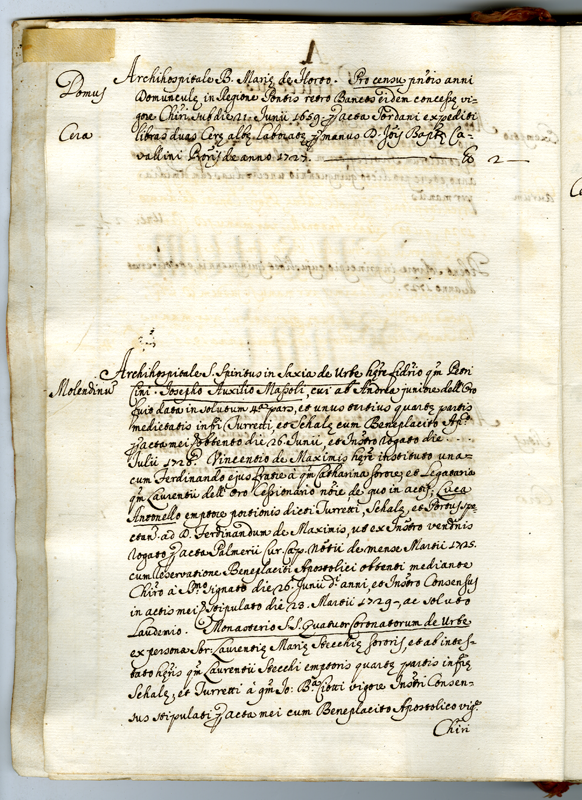 1
Domus
Archihospitale B. Mariæ de Horto. Pro censu pñtis anni
Domunculæ in Regione Pontis retro Bancos eidem concessæ vi-
gore Chiri sub die 21. Junii 1659. acta Jordani expediti
Cera
libras duas Ceræ albæ laboratæ manus D. Jõis Bapt. Ca-
vallini de anno 1727. 2 —
Molendinũ
Archihospitale S. Spiritus in Saxia de Urbe
Josepho Auxilio Massoli, cui ab Andrea juniore dell'Oro
data in solutum 4ᵃ pars, et unus tertius quartæ partis
medietatis infri Turreti, et Schalæ cum Beneplacito Ap.
acta mei obtento die 26 Junii, et Instro rogato die
Julii 1728. Vincentio de Maximis instituto una-
cum Ferdinando ejus a qm Catharina sorore, et Legataria
qm Laurentii dell'Oro Cessionario nõie de quo in actis, Luca
Antonello emptore portionis dicti Turreti, Schalæ, et Portus spe
ctan. ad D. Ferdinandum de Maximis, ut ex Instro vendñis
rogato acta Palmerii Cur. Cap. Notũi de mense Martii 1725.
cum Reservatione Beneplaciti Apostolici obtenti mediante
Chiro à signato die 26. Junii dⁱ anni, et Instro Consensus
in actis mei stipulato die 23. Martii 1729, ac soluto
Laudemio. Monasterio S.S. Quatuor Coronatorum de Urbe
ex persona Sor: Laurentiæ Mariæ Stecchis sororis et ab intes-
tato qm Laurentii Stecchi emptoris quartæ partis infræ
Schalæ, et Turreti à qm Jo: Bᵃ Ciotti vigore Instri Consen-
sus stipulati acta mei cum Beneplacito Apostolico vig.
Chiri